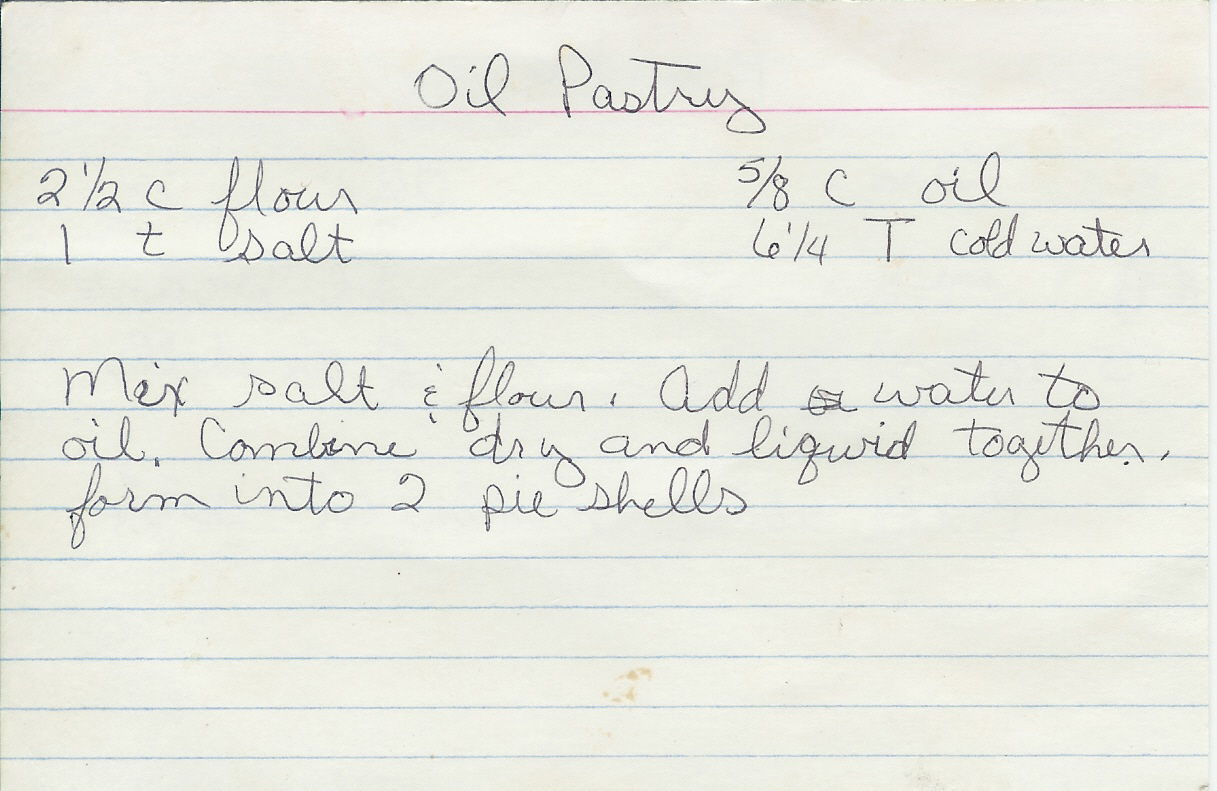 Oil Pastry
2 1/2 c flour 5/8 C oil
1 t salt 6 1/4 T cold water
Mix salt & flour. Add water to
oil. Combine dry and liquid together.
form into 2 pie shells